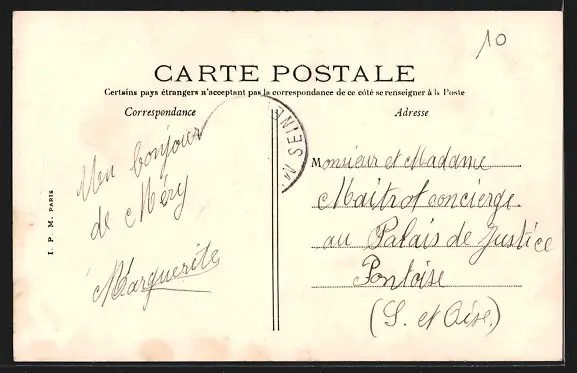 10
CARTE POSTALE
Certains pays étrangers n'acceptant pas la correspondance de ce côté se renseigner à la Poste
Correspondance
Adresse
SEINE M.
Un bonjour
de Méry
Marguerite
I. P. M. PARIS
Monsieur et Madame
Maitrot concierge
au Palais de Justice
Pontoise
(S. et Oise.)